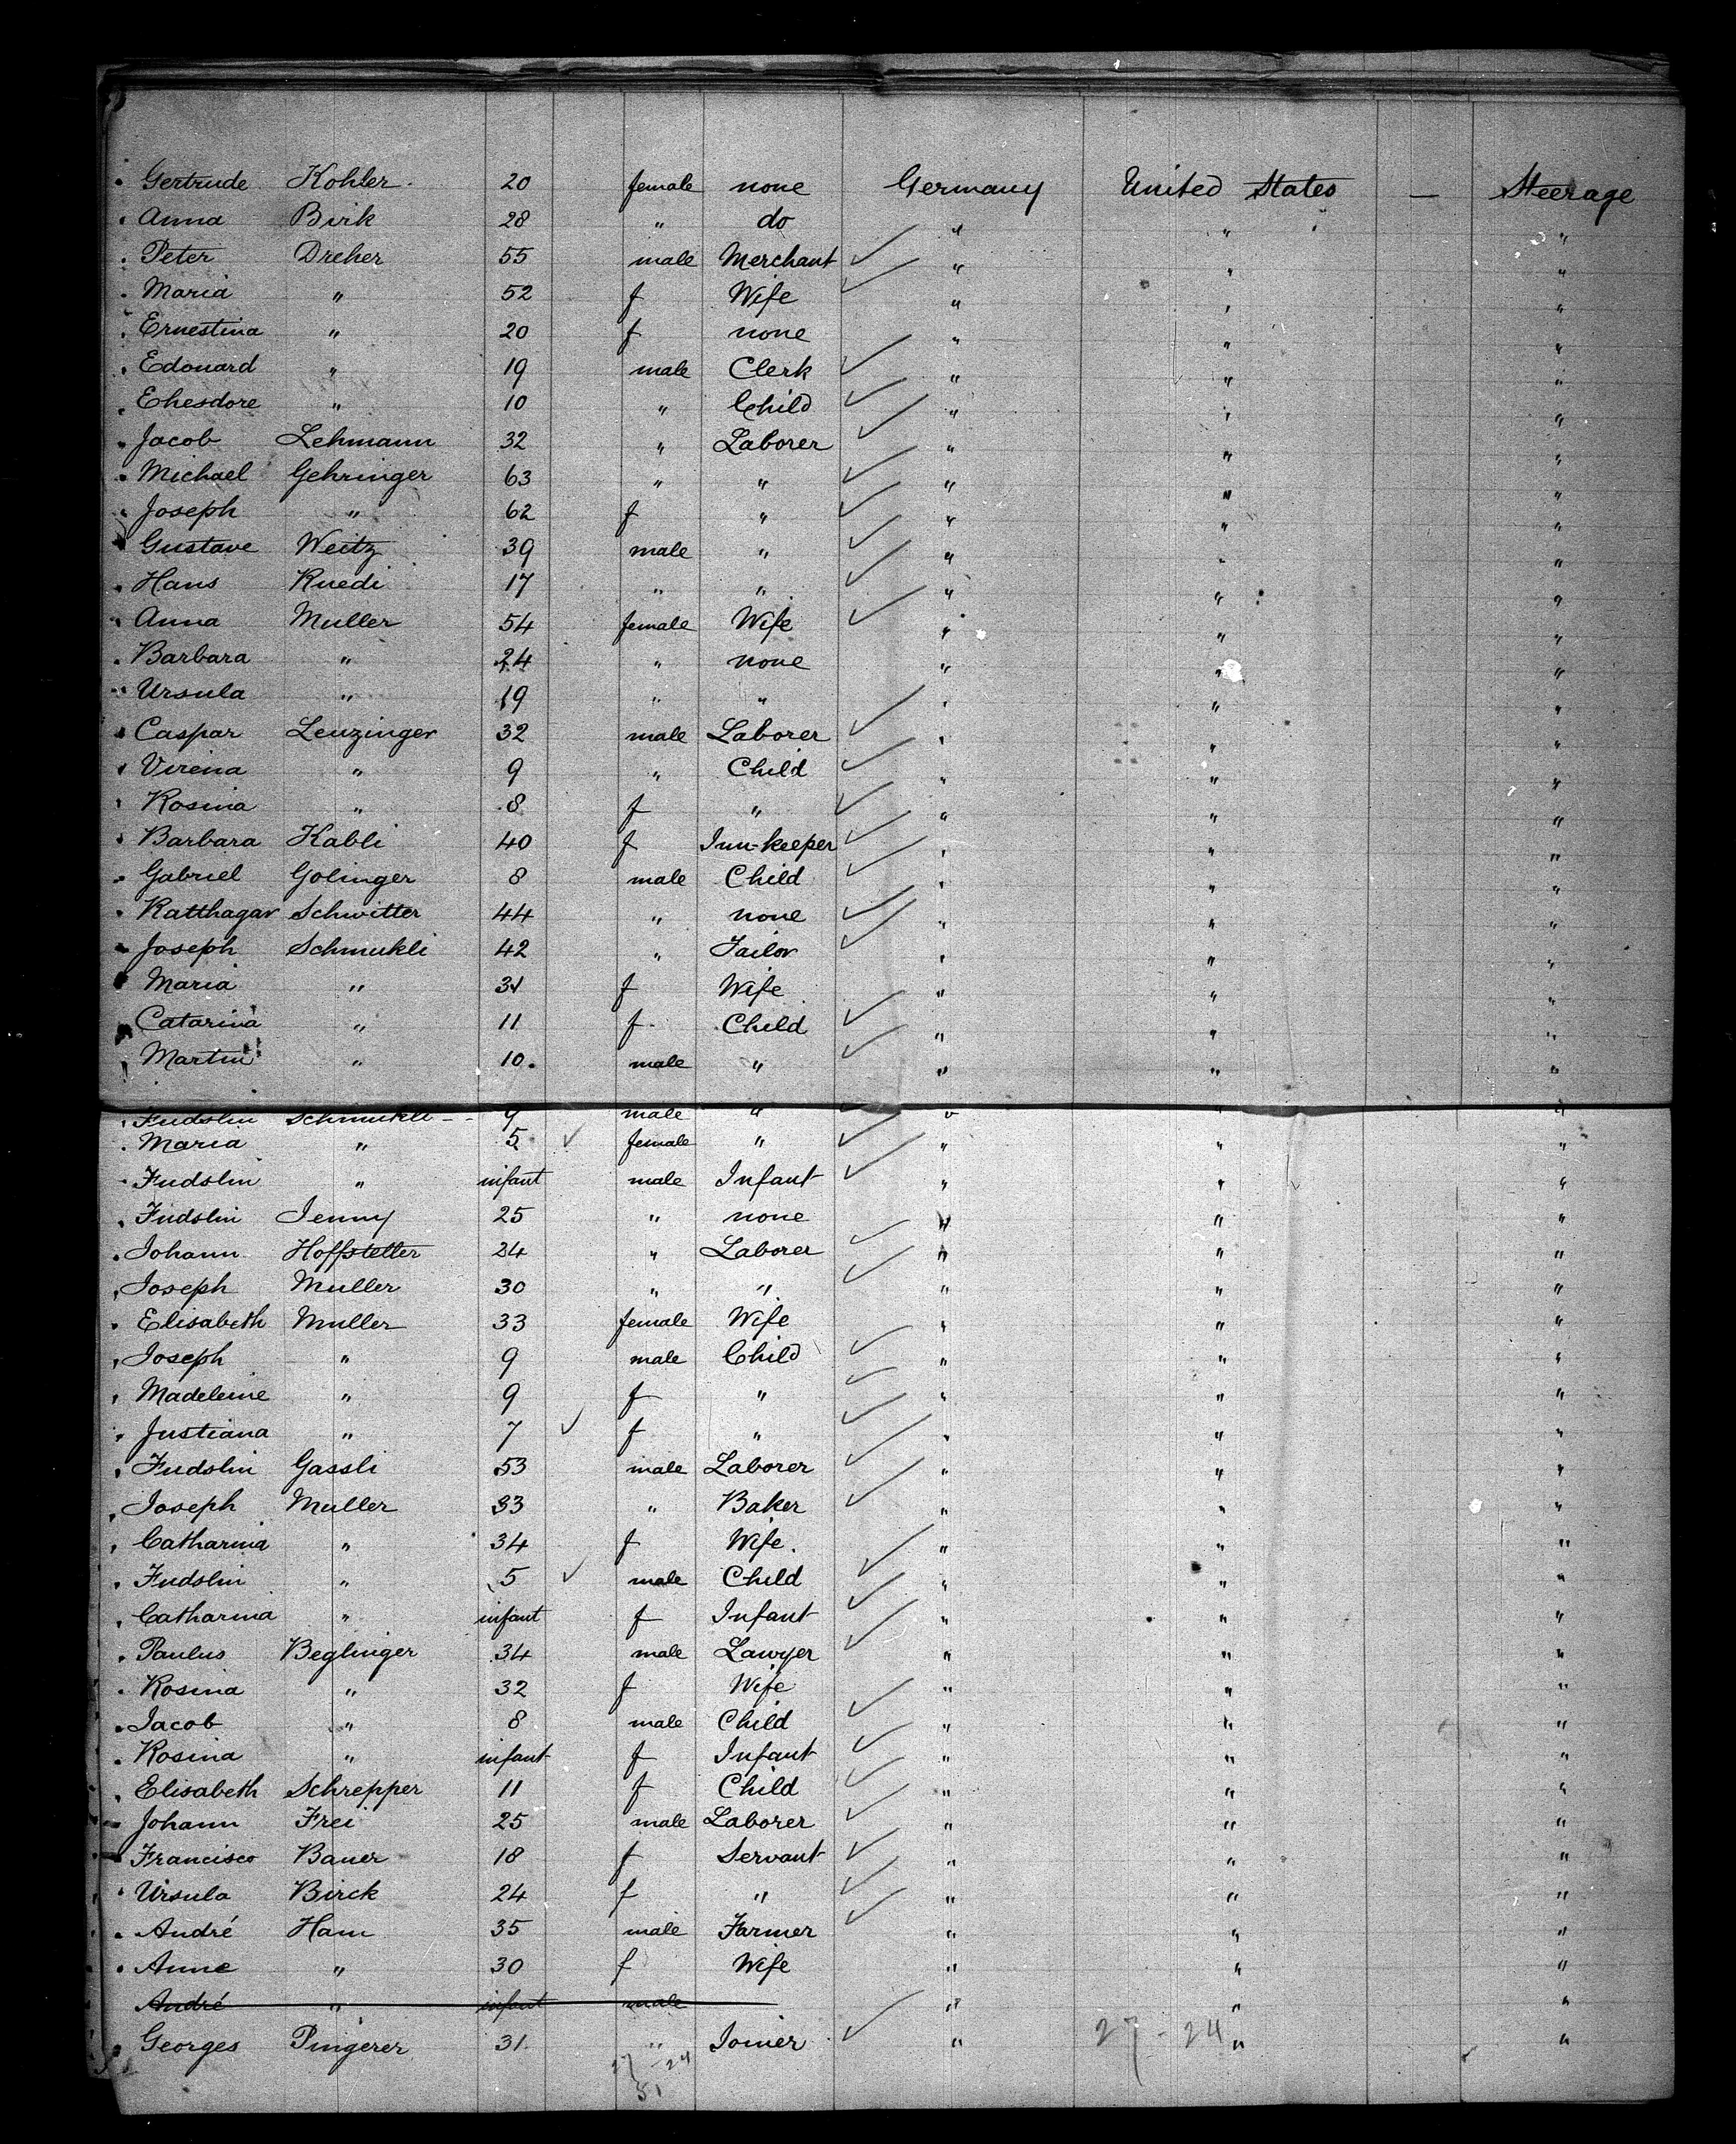 Gertrude Kohler. 20 female none Germany United States — Steerage
Anna Birk 28 " do " " "
Peter Dreher 55 male Merchant " " "
Maria " 52 f Wife " " "
Ernestina " 20 f none " " "
Edouard " 19 male Clerk " " "
Ehesdore " 10 " Child " " "
Jacob Lehmann 32 " Laborer " " "
Michael Gehringer 63 " " " " "
Joseph " 62 f " " " "
Gustave Weitz 39 male " " " "
Hans Ruedi 17 " " " " "
Anna Muller 54 female Wife " " "
Barbara " 24 " none " " "
Ursula " 19 " " " " "
Caspar Leuzinger 32 male Laborer " " "
Virena " 9 " Child " " "
Rosina " 8 f " " " "
Barbara Kabli 40 f Inn-keeper " " "
Gabriel Golinger 8 male Child " " "
Ratthagar Schwitter 44 " none " " "
Joseph Schmukli 42 " Tailor " " "
Maria " 31 f Wife " " "
Catarina " 11 f Child " " "
Martin " 10 male " " " "
Fudslin Schmukli 9 male " " " "
Maria " 5 female " " " "
Fudslin " infant male Infant " " "
Fudslin Jenny 25 " none " " "
Johann Hoffstetter 24 " Laborer " " "
Joseph Muller 30 " " " " "
Elisabeth Muller 33 female Wife " " "
Joseph " 9 male Child " " "
Madeleine " 9 f " " " "
Justiana " 7 f " " " "
Fudslin Gassli 53 male Laborer " " "
Joseph Muller 33 " Baker " " "
Catharina " 34 f Wife. " " "
Fudslin " 5 male Child " " "
Catharina " infant f Infant " " "
Paulus Beglinger 34 male Lawyer " " "
Rosina " 32 f Wife " " "
Jacob " 8 male Child " " "
Rosina " infant f Infant " " "
Elisabeth Schrepper 11 f Child " " "
Johann Frei 25 male Laborer " " "
Francisco Bauer 18 f Servant " " "
Ursula Birck 24 f " " " "
André Ham 35 male Farmer " " "
Anne " 30 f Wife " " "
André " infant male " " "
Georges Pingerer 31 " Joiner " 27 - 24 " "
27 - 24
51